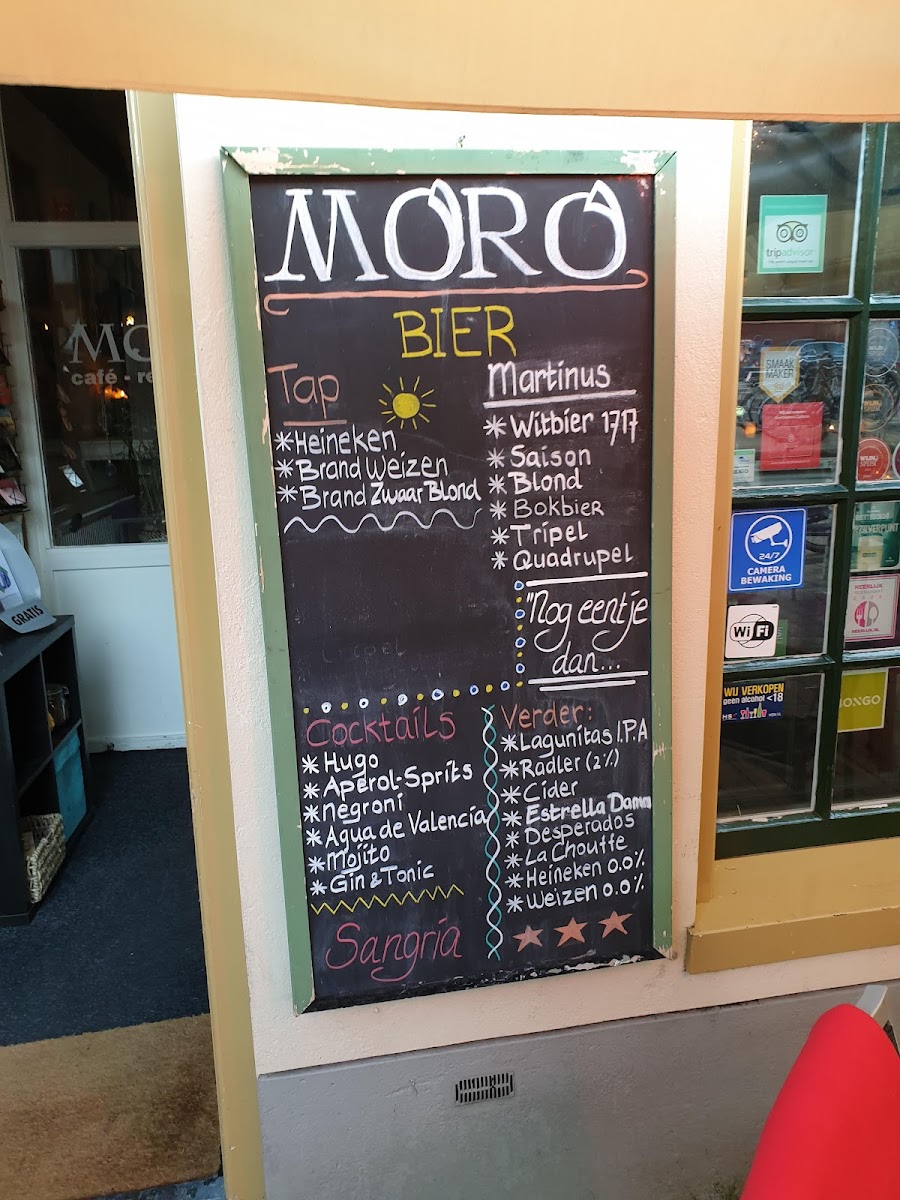 MORO
BIER
Tap
*Heineken
*Brand Weizen
*Brand Zwaar Blond
Martinus
*Witbier 1717
*Saison
*Blond
*Bokbier
*Tripel
*Quadrupel
"Nog eentje
dan...
Cocktails
*Hugo
*Aperol-Sprits
*Negroni
*Agua de Valencia
*Mojito
*Gin & Tonic
Sangria
Verder:
*Lagunitas I.P.A
*Radler (2%)
*Cider
*Estrella Damm
*Desperados
*La Chouffe
*Heineken 0.0%
*Weizen 0.0%
MO
café · re
GRATIS
tripadvisor
SMAAK
MAKER
24/7
CAMERA
BEWAKING
WiFi
WIJ VERKOPEN
geen alcohol <18
ZILVERPUNT
HEERLIJK
BONGO